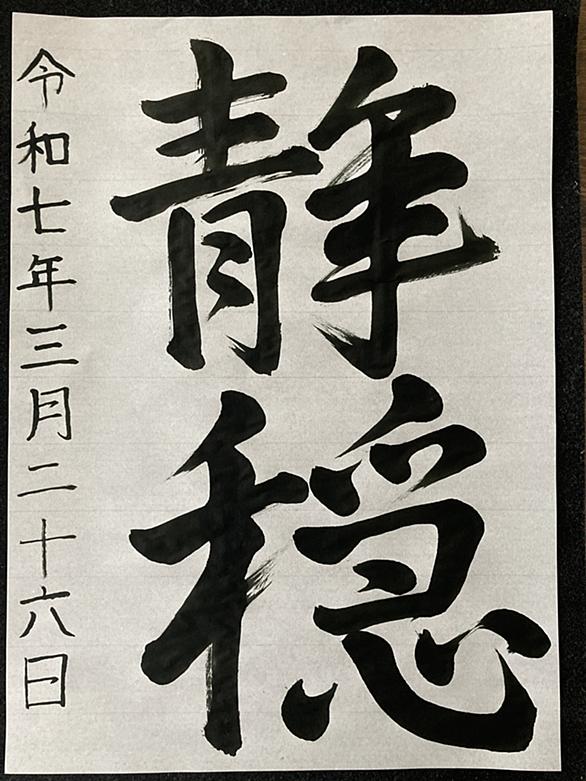 静穏
令和七年三月二十六日